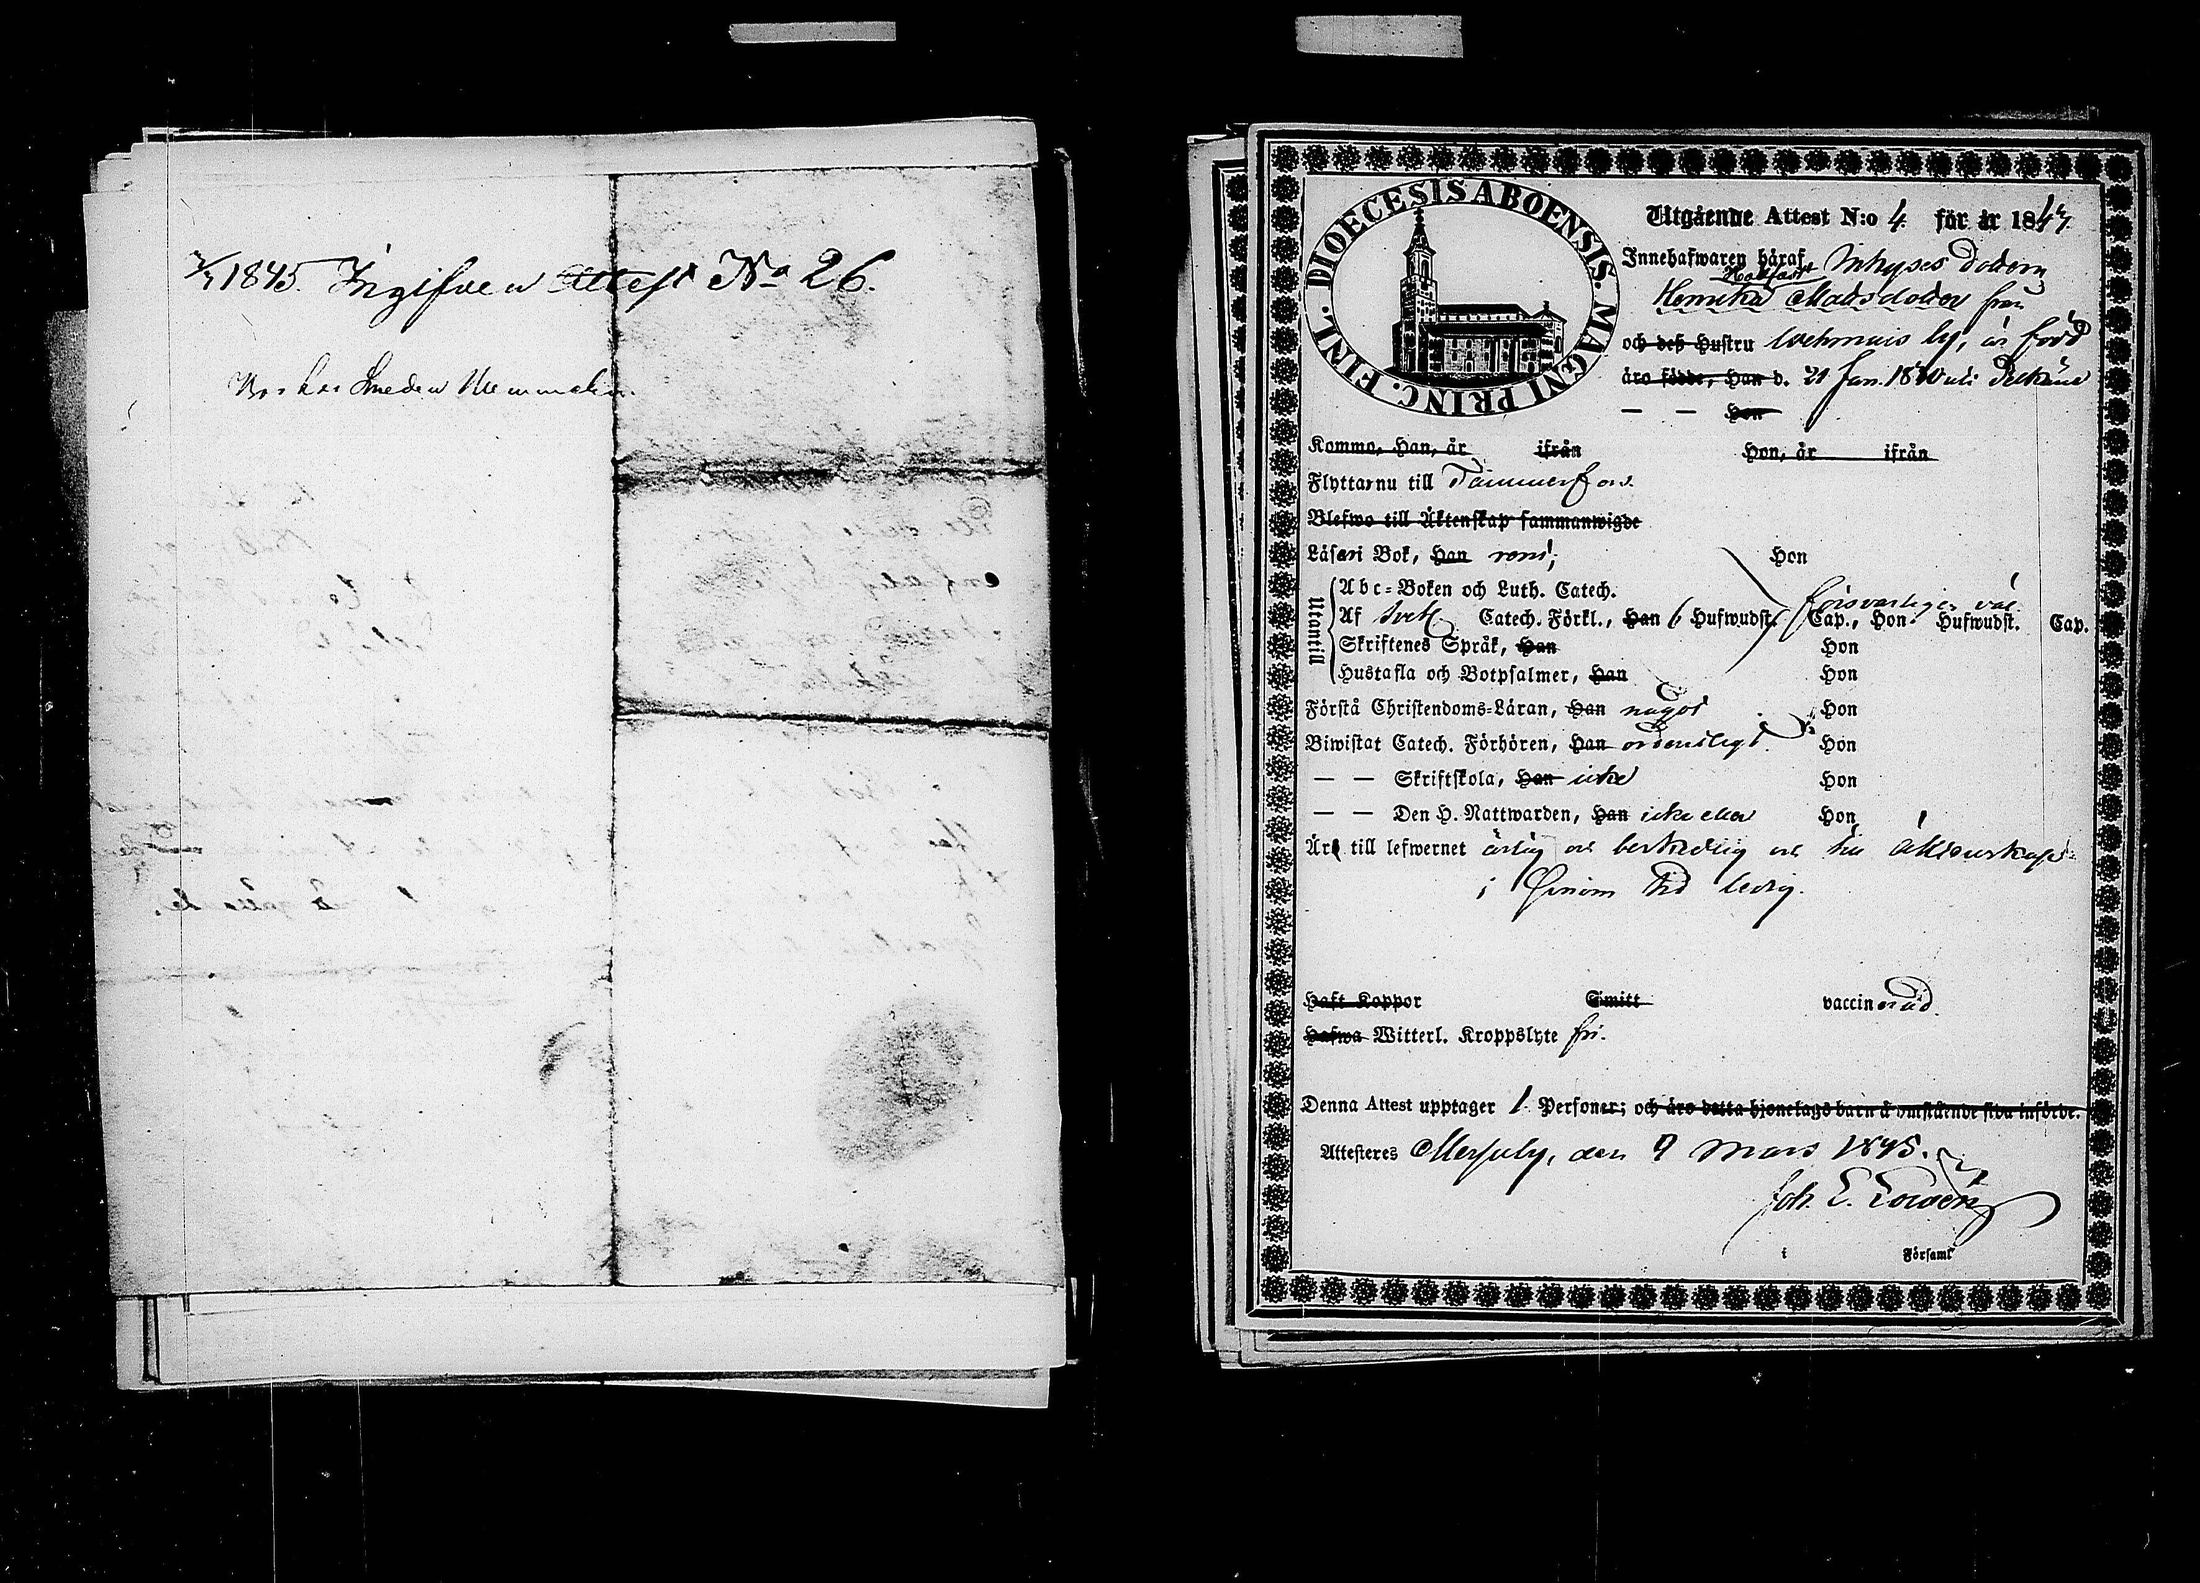 7/7 1845. Ingifven Attest No 26.
Bor hos Smeden Memmelin.
DIOECESIS ABOENSIS. MAGNI PRINC. FINL.
Utgående Attest N:o 4 för år 1845
Innehafwaren häraf Inhyses Dottern
Hedvig
Henrika Matsdotter från
och deß Hustru by, är född
äro födde, Han d. 21 Jan. 1810 uti Pelkäne
— — Hon
Kommo, Han, år ifrån Hon, år ifrån
Flyttar nu till Tammerfors.
Blefwo till Äktenskap sammanwigde
Läser i Bok, Han rent; Hon
Utantill
Abc-Boken och Luth. Catech.
försvarligen väl
Af Svet. Catech. Förkl., Han 6 Hufwudst. Cap., Hon Hufwudst. Cap.
Skriftenes Språk, Han Hon
Hustafla och Botpsalmer, Han Hon
Förstå Christendoms-Läran, Han något Hon
Biwistat Catech. Förhören, Han ordentligt. Hon
— — Skriftskola, Han icke Hon
— — Den H. Nattwarden, Han icke eller Hon
Äro till lefwernet ärlig och beskedlig och till äktenskap
i Herranom led ledig.
Haft Koppor Smitt vaccinerad.
Hafwa Witterl. Kroppslyte fri.
Denna Attest upptager 1 Personer; och äro detta hjonelags barn å omstående sida införde.
Attesteres Messuby, den 9 Mars 1845.
Joh. E.
i Församl